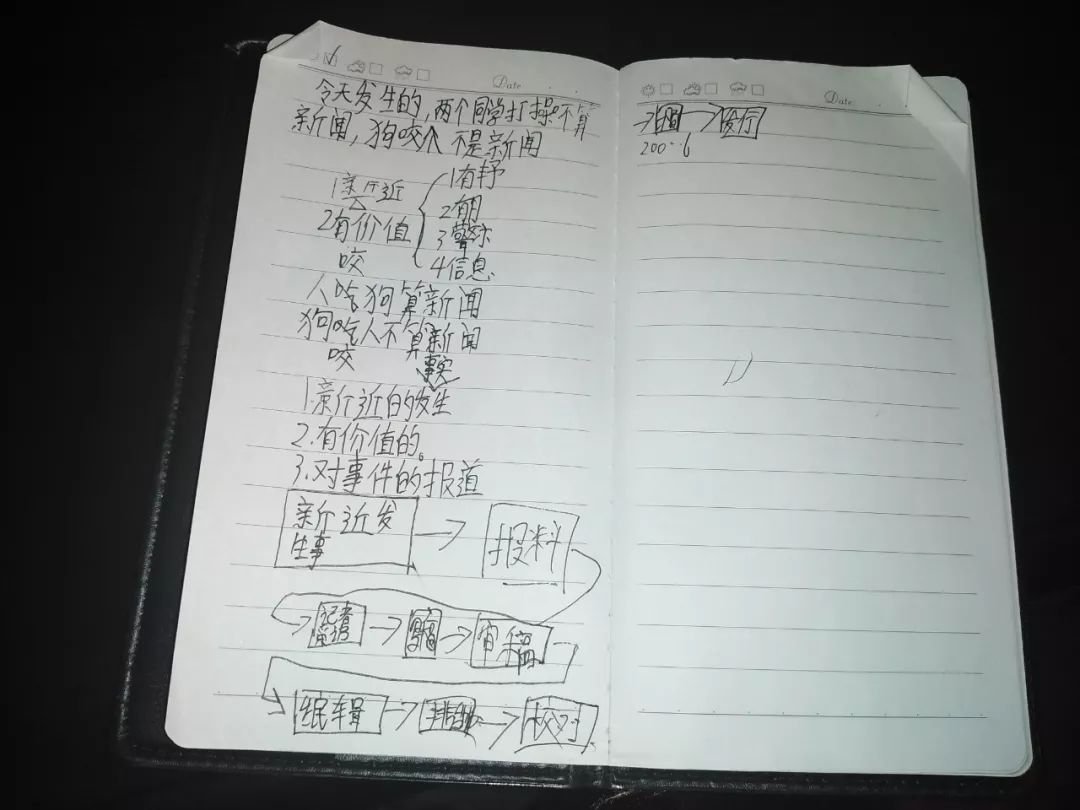 Date
今天发生的,两个同学打操不算
新闻,狗咬人不是新闻
1新近
2有价值
1有
2有
3警
4信息
咬
人吃狗算新闻
狗吃人不算新闻
咬
事实
1.新近的发生
2.有价值的。
3.对事件的报道
新近发
生事
报料
记者
写稿
审稿
编辑
排版
校对
Date
发行
200